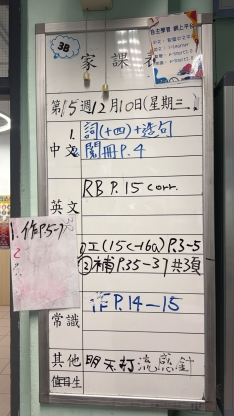 3B
家課表
自主學習 網上平台
第15週12月10日(星期三)
1. 詞(十四)+造句
中文 2. 閱冊P.4
RB P.15 corr.
英文
1. 作P.5-7
① 工(15c-16a) P.3-5
② 補P.35-37共3頁
作P.14-15
常識
其他 明天打流感針
值日生